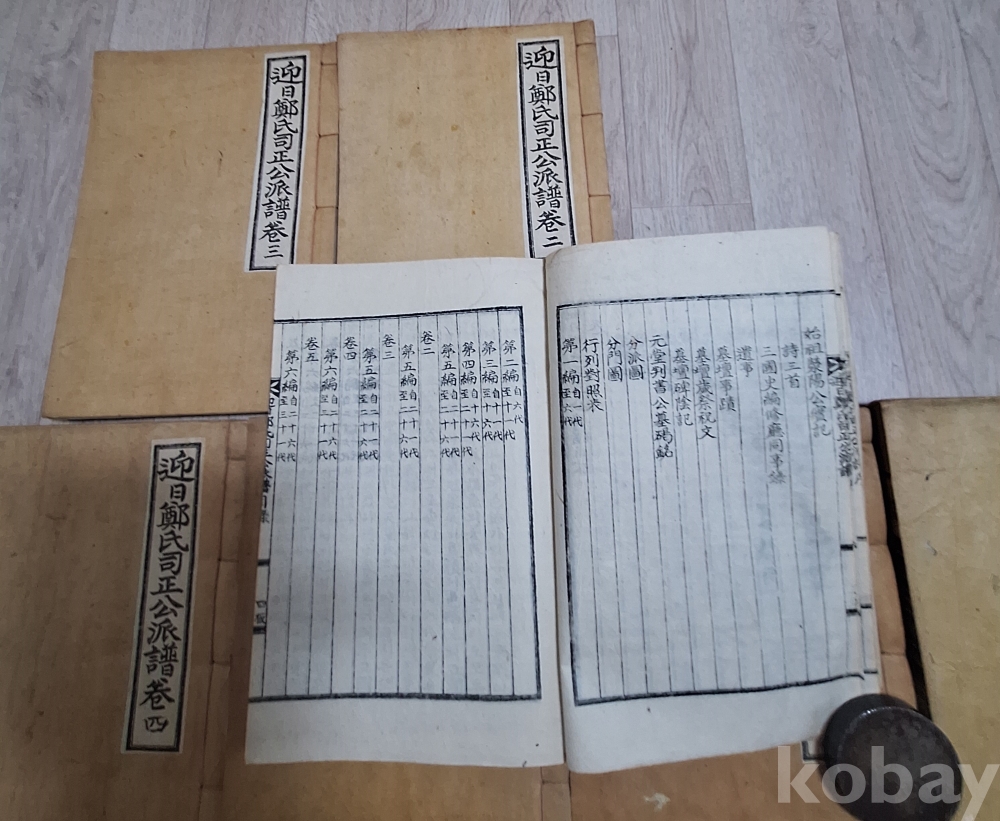 迎日鄭氏司正公派譜卷三
迎日鄭氏司正公派譜卷二
迎日鄭氏司正公派譜卷四
始祖滎陽公實記
詩三首
三國史編修廳同事錄
遺事
墓壇事蹟
墓壇歲祭祝文
墓壇碑陰記
元堂判書公墓碣銘
分派圖
分門圖
行列對照表
第一編自一代至六代
第二編自六代至十一代
第三編自十一代至十六代
第四編自十六代至二十一代
第五編自二十一代至二十六代
卷二
第五編自二十一代至二十六代
卷三
第五編自二十一代至二十六代
卷四
第六編自二十六代至三十一代
卷五
第六編自二十六代至三十一代
kobay